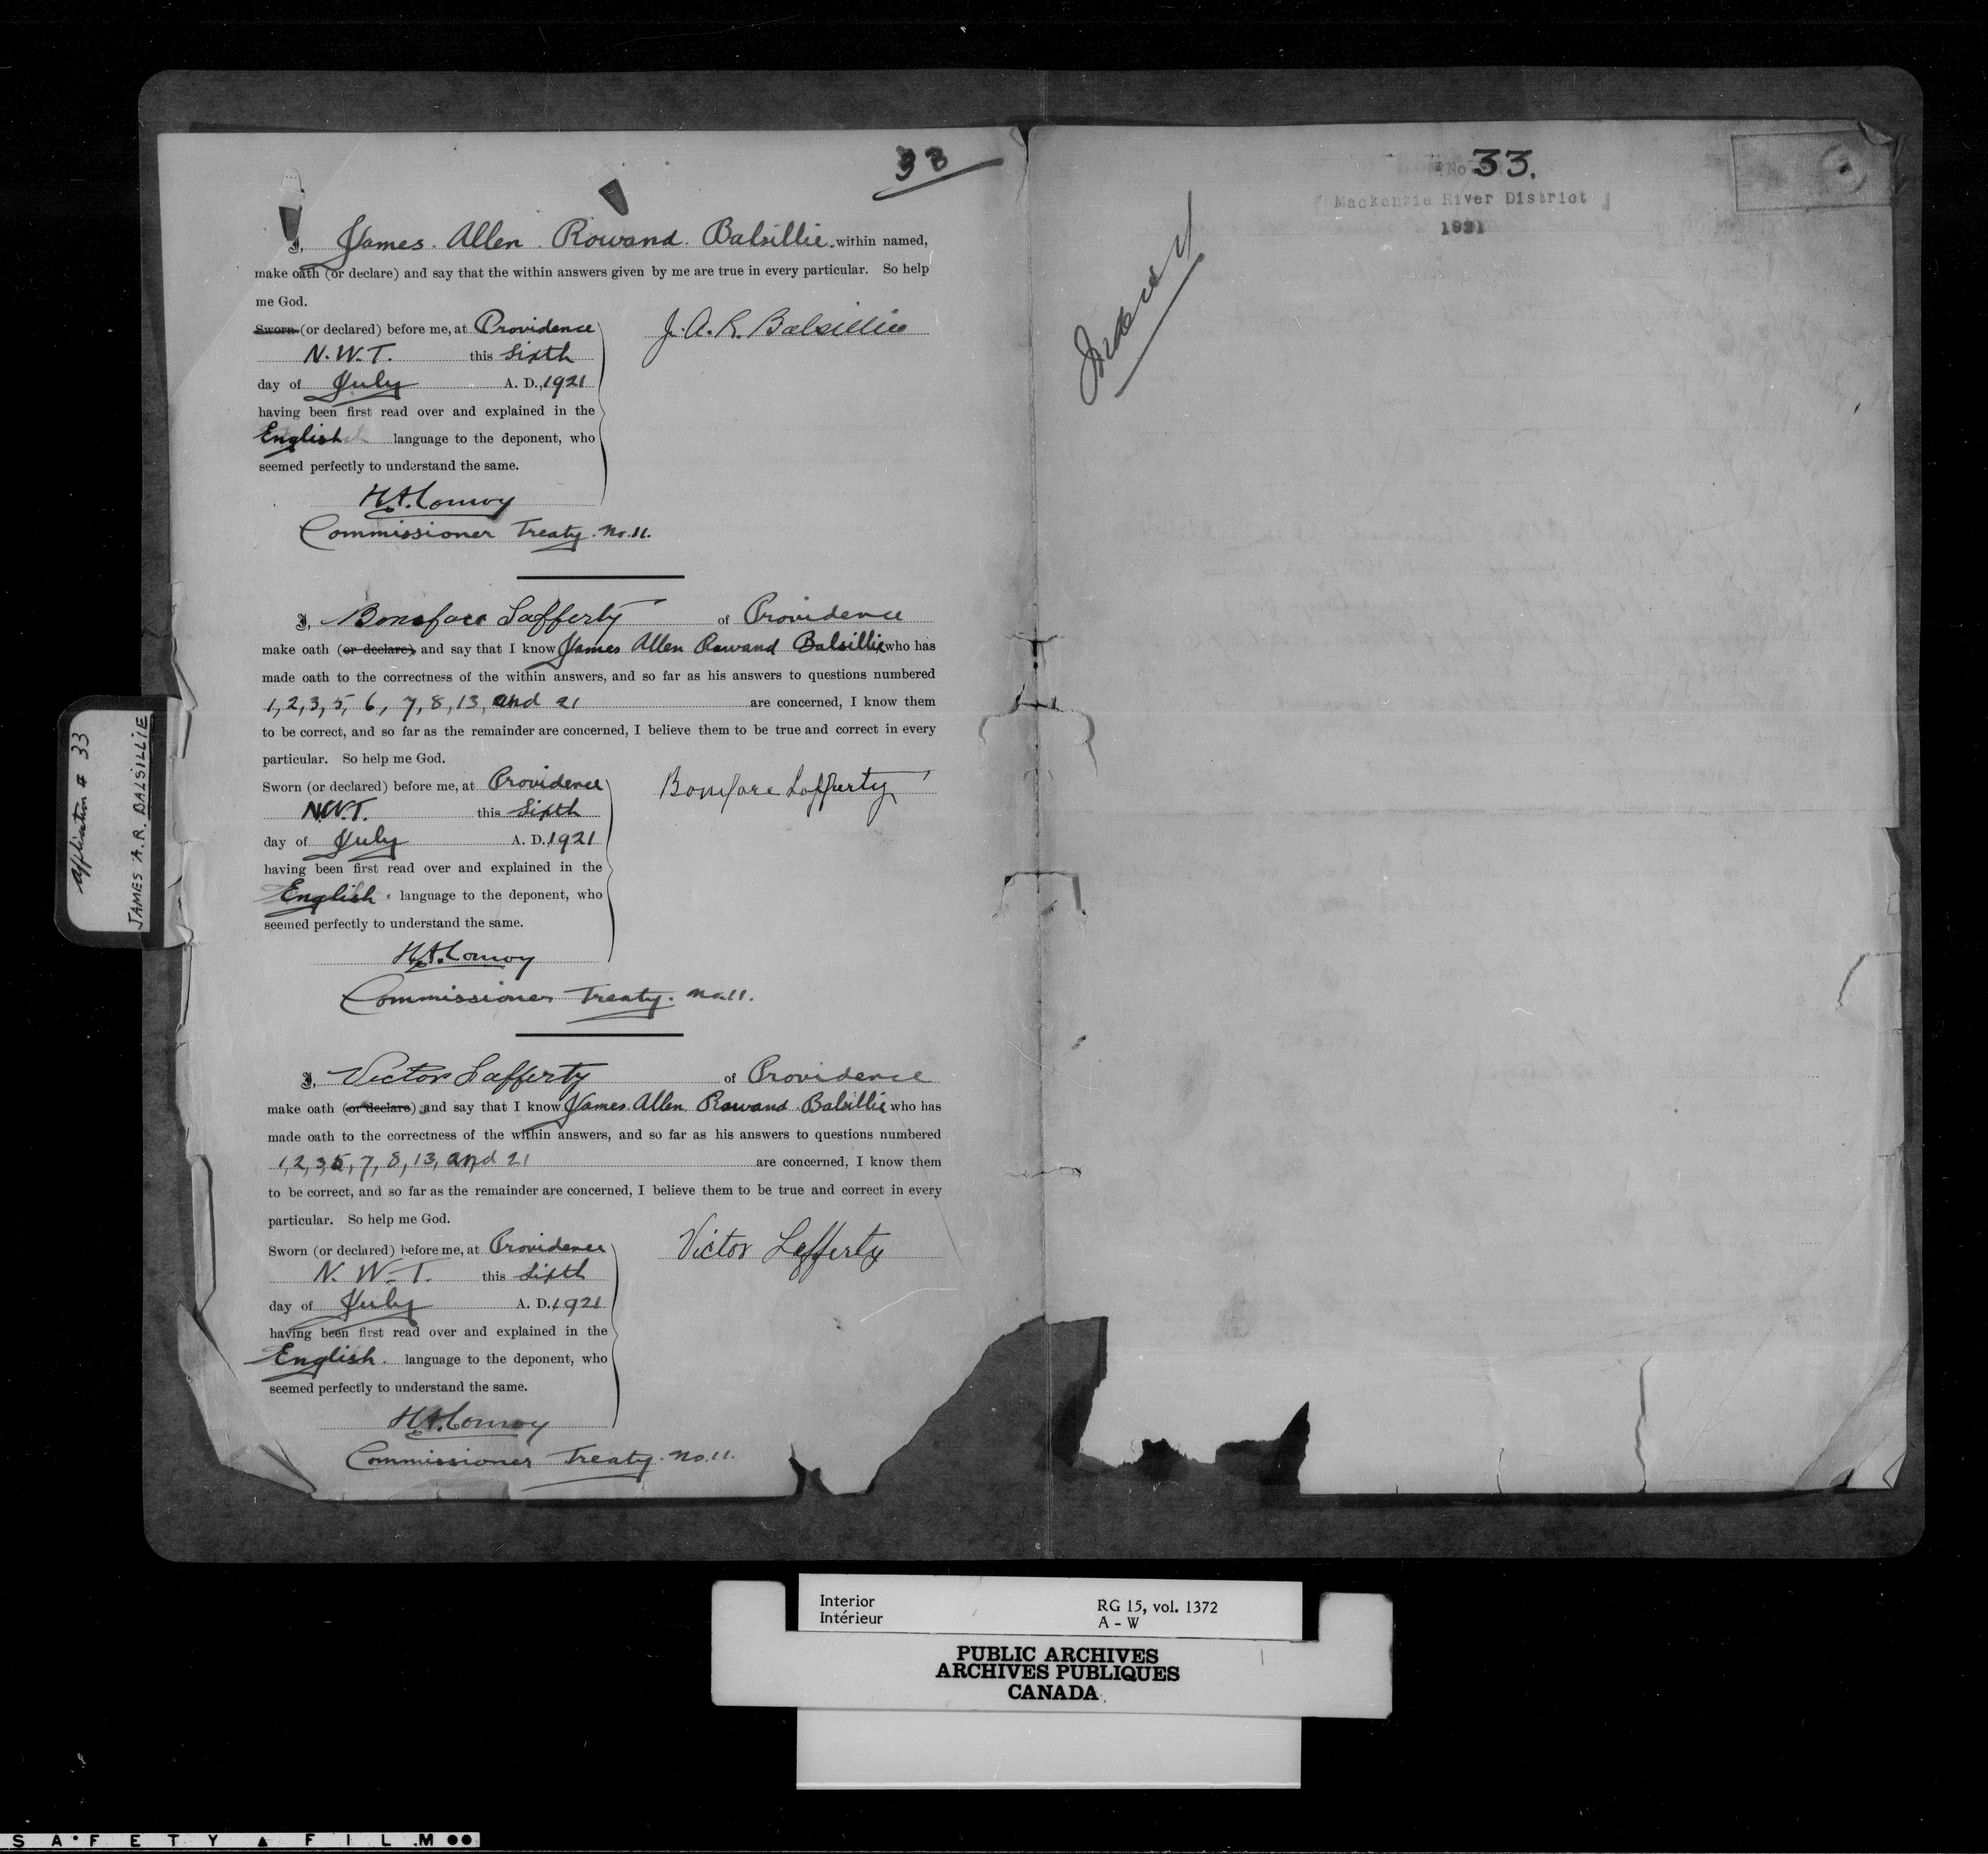 33
I, James Allen Rowand Balsillie within named,
make oath (or declare) and say that the within answers given by me are true in every particular. So help
me God.
Sworn (or declared) before me, at Providence
N.W.T. this Sixth
day of July A. D., 1921
having been first read over and explained in the
English language to the deponent, who
seemed perfectly to understand the same.
J. A. R. Balsillie
H.A. Conroy
Commissioner Treaty No. 11.
I, Boniface Lafferty of Providence
make oath (or declare), and say that I know James Allen Rowand Balsillie who has
made oath to the correctness of the within answers, and so far as his answers to questions numbered
1, 2, 3, 5, 6, 7, 8, 13, and 21 are concerned, I know them
to be correct, and so far as the remainder are concerned, I believe them to be true and correct in every
particular. So help me God.
Sworn (or declared) before me, at Providence
N.W.T. this Sixth
day of July A. D. 1921
having been first read over and explained in the
English language to the deponent, who
seemed perfectly to understand the same.
Boniface Lafferty
H.A. Conroy
Commissioner Treaty. No. 11.
I, Victor Lafferty of Providence
make oath (or declare), and say that I know James Allen Rowand Balsillie who has
made oath to the correctness of the within answers, and so far as his answers to questions numbered
1, 2, 3, 5, 7, 8, 13, and 21 are concerned, I know them
to be correct, and so far as the remainder are concerned, I believe them to be true and correct in every
particular. So help me God.
Sworn (or declared) before me, at Providence
N. W. T. this Sixth
day of July A. D. 1921
having been first read over and explained in the
English language to the deponent, who
seemed perfectly to understand the same.
Victor Lafferty
H.A. Conroy
Commissioner Treaty. No. 11.
Application # 33
JAMES A.R. BALSILLIE
No 33.
Mackenzie River District
1921
Interior
Intérieur
RG 15, vol. 1372
A - W
PUBLIC ARCHIVES
ARCHIVES PUBLIQUES
CANADA
SAFETY ▲ FILM ●●